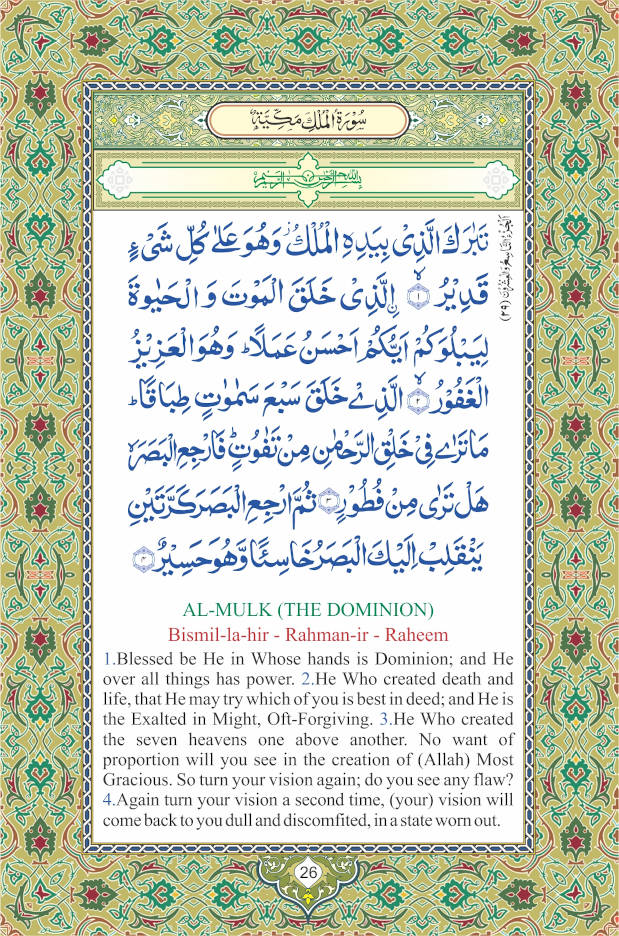 سُوْرَةُ الْمُلْكِ مَكِّيَّةٌ
بِسْمِ اللهِ الرَّحْمٰنِ الرَّحِيْمِ
تَبٰرَكَ الَّذِیْ بِیَدِهِ الْمُلْكُ ۫ وَهُوَ عَلٰى كُلِّ شَیْءٍ
قَدِیْرُ ۙ﴿۱﴾ اۨلَّذِیْ خَلَقَ الْمَوْتَ وَ الْحَیٰوةَ
لِیَبْلُوَكُمْ اَیُّكُمْ اَحْسَنُ عَمَلًا ؕ وَهُوَ الْعَزِیْزُ
الْغَفُوْرُ ۙ﴿۲﴾ الَّذِیْ خَلَقَ سَبْعَ سَمٰوٰتٍ طِبَاقًا ؕ
مَا تَرٰى فِیْ خَلْقِ الرَّحْمٰنِ مِنْ تَفٰوُتٍ ؕ فَارْجِعِ الْبَصَرَ ۙ
هَلْ تَرٰى مِنْ فُطُوْرٍ ﴿۳﴾ ثُمَّ ارْجِعِ الْبَصَرَ كَرَّتَیْنِ
یَنْقَلِبْ اِلَیْكَ الْبَصَرُ خَاسِئًا وَّهُوَ حَسِیْرٌ ﴿۴﴾
اَلْجُزْءُ التَّاسِعُ وَالْعِشْرُوْنَ (۲۹)
AL-MULK (THE DOMINION)
Bismil-la-hir - Rahman-ir - Raheem
1.Blessed be He in Whose hands is Dominion; and He
over all things has power. 2.He Who created death and
life, that He may try which of you is best in deed; and He is
the Exalted in Might, Oft-Forgiving. 3.He Who created
the seven heavens one above another. No want of
proportion will you see in the creation of (Allah) Most
Gracious. So turn your vision again; do you see any flaw?
4.Again turn your vision a second time, (your) vision will
come back to you dull and discomfited, in a state worn out.
26